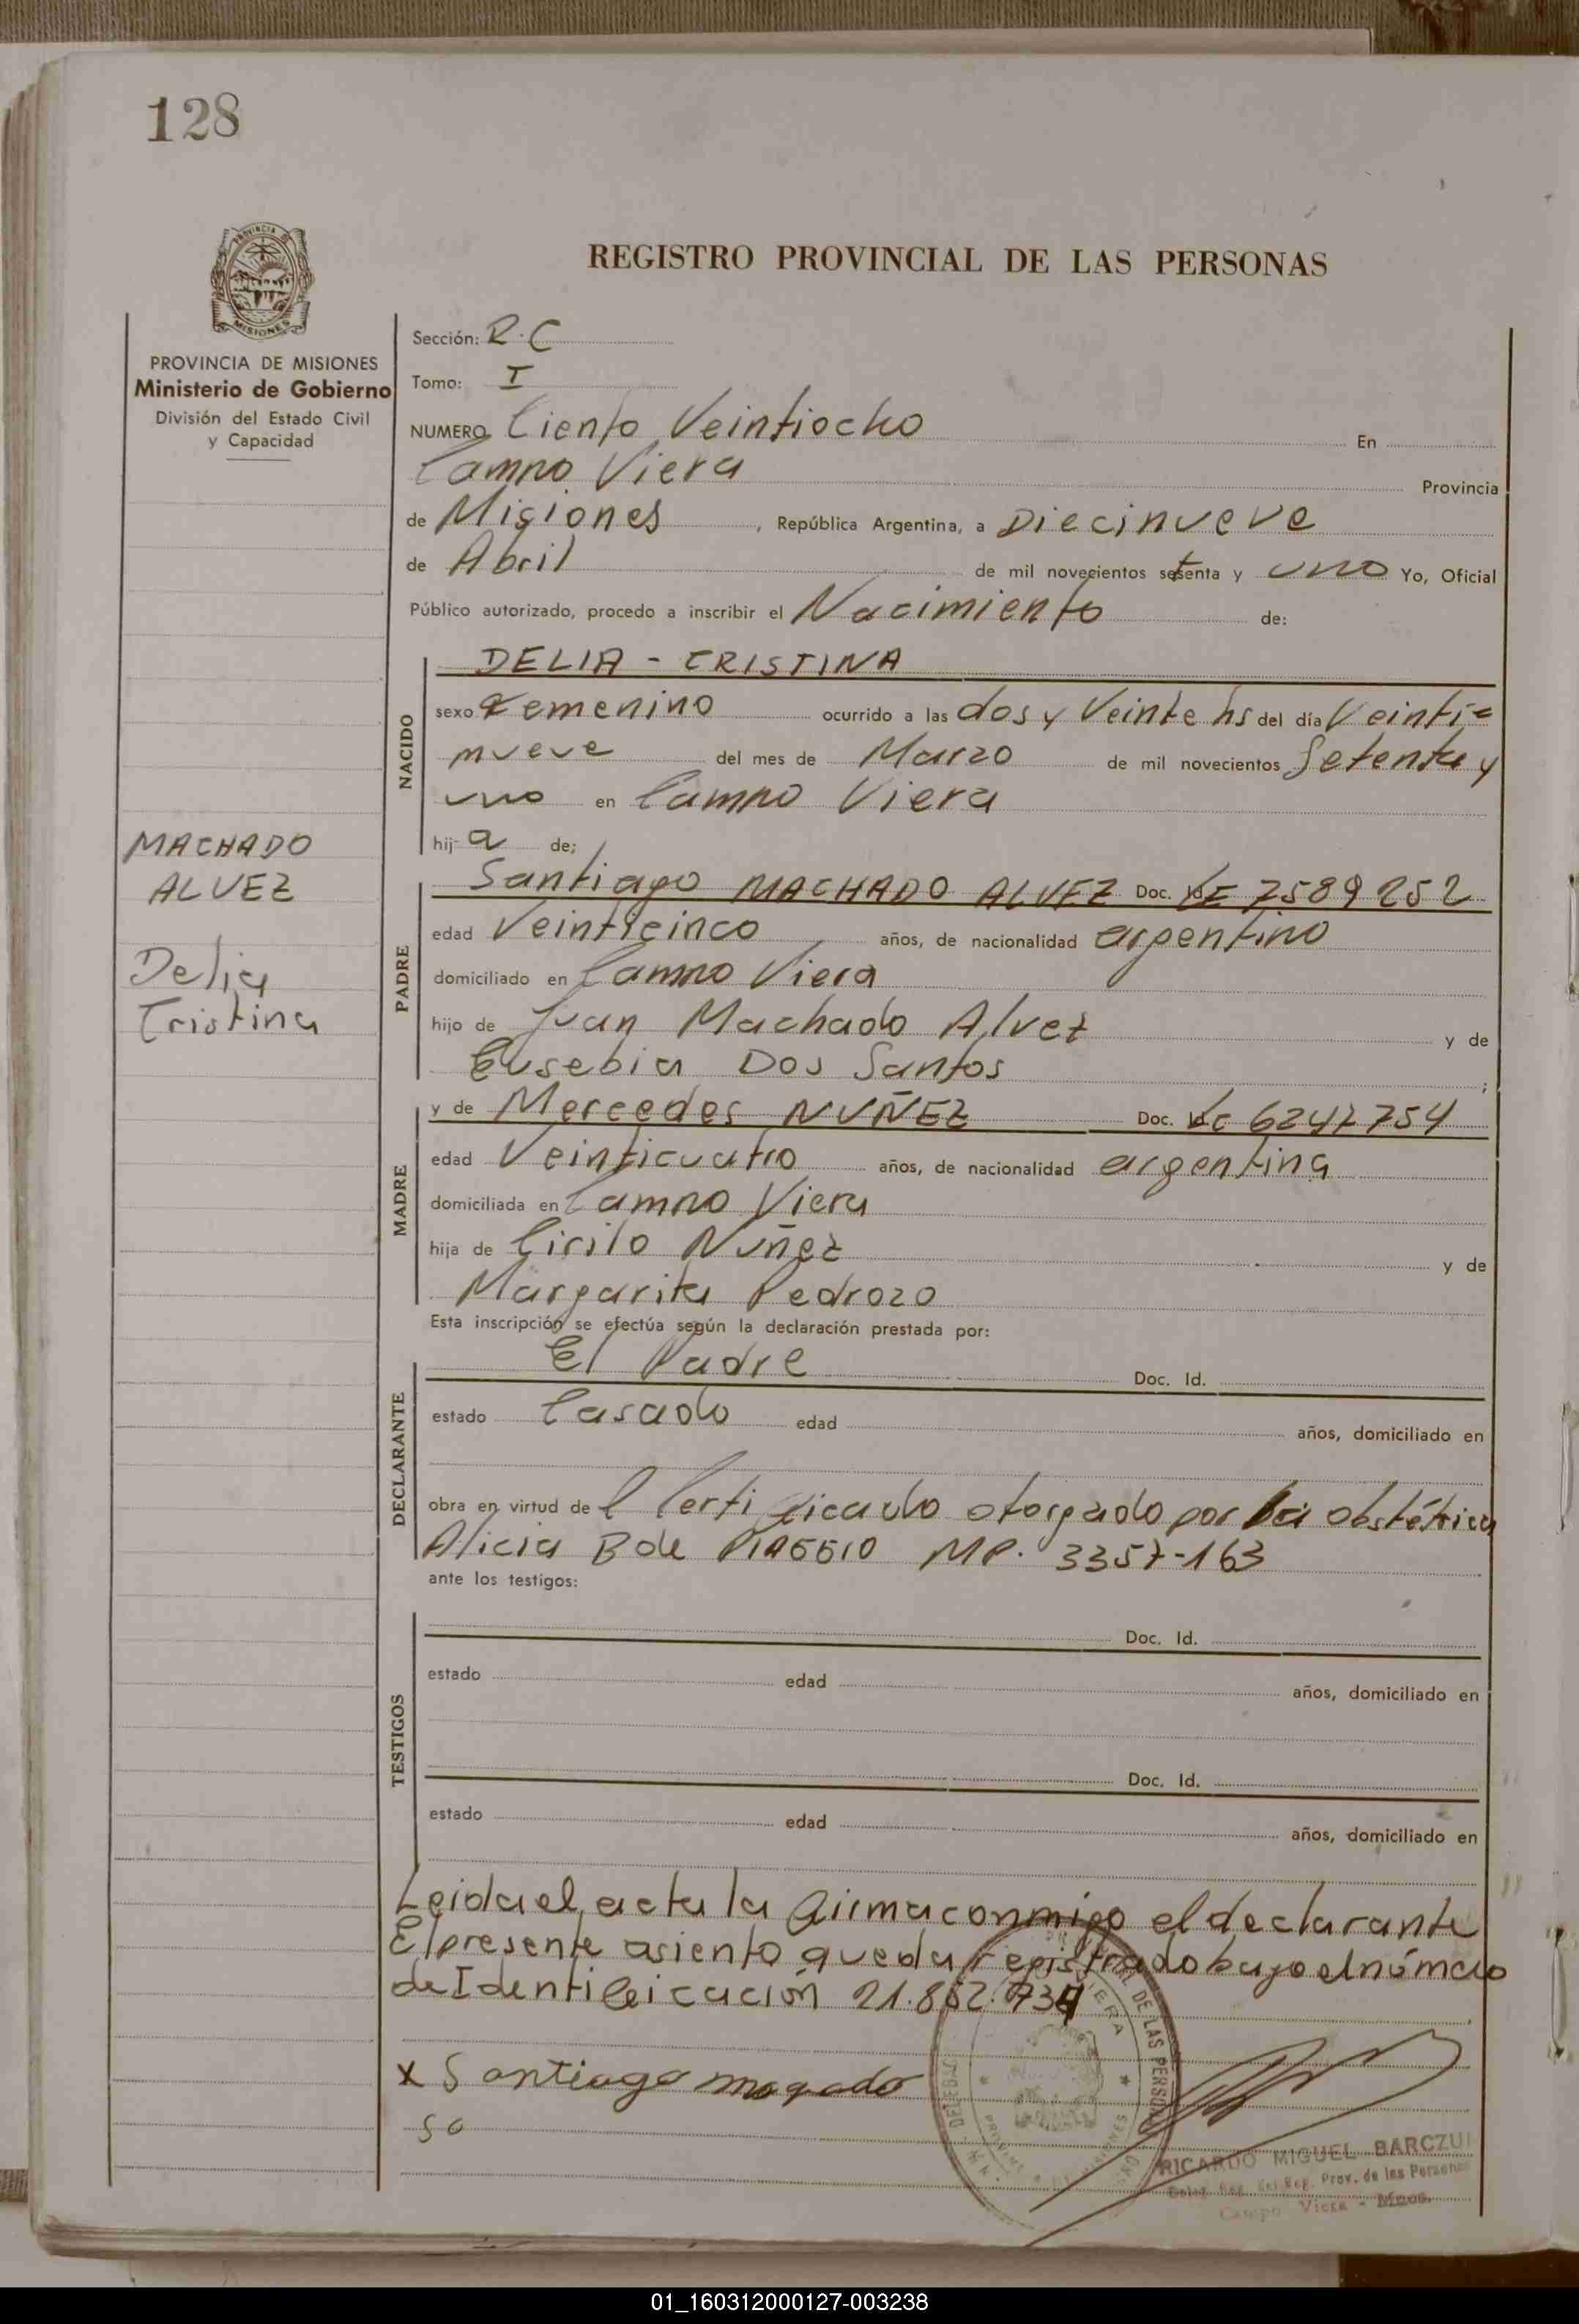 128
REGISTRO PROVINCIAL DE LAS PERSONAS
PROVINCIA DE MISIONES
Ministerio de Gobierno
División del Estado Civil
y Capacidad
MACHADO
ALVEZ
Delia
Cristina
Sección: R.C
Tomo: I
NUMERO Ciento Veintiocho En
Campo Viera Provincia
de Misiones, República Argentina, a Diecinueve
de Abril de mil novecientos setenta y uno Yo, Oficial
Público autorizado, procedo a inscribir el Nacimiento de:
NACIDO
DELIA - CRISTINA
sexo Femenino ocurrido a las dos y Veinte hs del día Veinti=
nueve del mes de Marzo de mil novecientos Setenta y
uno en Campo Viera
hija de;
PADRE
Santiago MACHADO ALVEZ Doc. LE 7589252
edad Veinticinco años, de nacionalidad argentino
domiciliado en Campo Viera
hijo de Juan Machado Alvez y de
Eusebia Dos Santos ;
MADRE
y de Mercedes NUÑEZ Doc. LC 6247754
edad Veinticuatro años, de nacionalidad argentina
domiciliada en Campo Viera
hija de Cirilo Nuñez y de
Margarita Pedrozo
Esta inscripción se efectúa según la declaración prestada por:
DECLARANTE
El Padre Doc. Id.
estado Casado edad años, domiciliado en
obra en virtud del Certificado otorgado por la obstétrica
Alicia B de MP. 3357-163
ante los testigos:
TESTIGOS
Doc. Id.
estado edad años, domiciliado en
Doc. Id.
estado edad años, domiciliado en
Leida el acta la firma conmigo el declarante
El presente asiento queda registrado bajo el número
de Identificación 21.862.734
x Santiago magado
so
RICARDO MIGUEL BARCZUI
Reg. Prov. de las Personas
Campo Viera - Mnes.
01_160312000127-003238